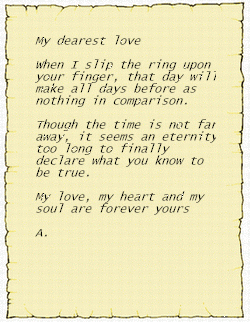 My dearest love
When I slip the ring upon
your finger, that day will
make all days before as
nothing in comparison.
Though the time is not far
away, it seems an eternity
too long to finally
declare what you know to
be true.
My love, my heart and my
soul are forever yours
A.